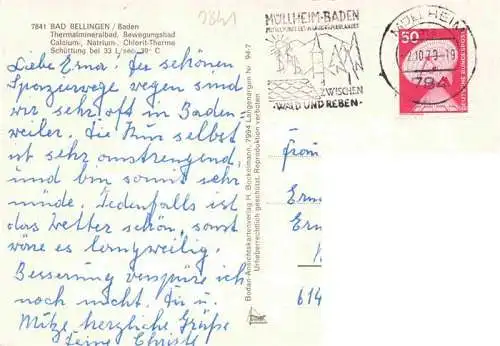 7841
7841 BAD BELLINGEN / Baden
Thermalmineralbad, Bewegungsbad
Calcium-, Natrium-, Chlorit-Therme
Schüttung bei 33 L/sec. 39° C
Liebe Erna! Der schönen
Spazierwege wegen sind
wir sehr oft in Baden-
weiler. Die Kur selbst
ist sehr anstrengend,
und bin somit sehr
müde. Jedenfalls ist
das Wetter schön, sonst
wäre es langweilig.
Besserung verspüre ich
noch nicht. Dir u.
Mütze herzliche Grüße
Deine Christe
Bodan-Ansichtskartenverlag H. Bockelmann, 7994 Langenargen Nr. 94-7
Urheberrechtlich geschützt. Reproduktion verboten
MÜLLHEIM-BADEN
MITTELPUNKT DES MARKGRÄFLERLANDES
ZWISCHEN
·WALD UND REBEN·
MÜLLHEIM
-19
784
50
DEUTSCHE BUNDESPOST
Frau
Erna
614